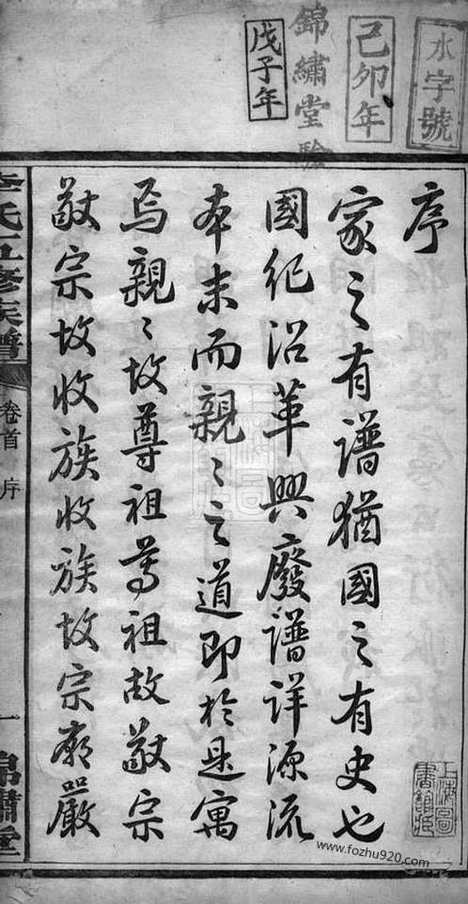 水字號
己卯年
錦繡堂驗
戊子年
序
家之有譜猶國之有史也
國紀沿革興廢譜詳源流
本末而親〻之道即於是寓
焉親〻故尊祖尊祖故敬宗
敬宗故收族收族故宗廟嚴
李氏五修族譜
卷首
序
一
錦繡堂
上海圖書館藏
www.fozhu920.com